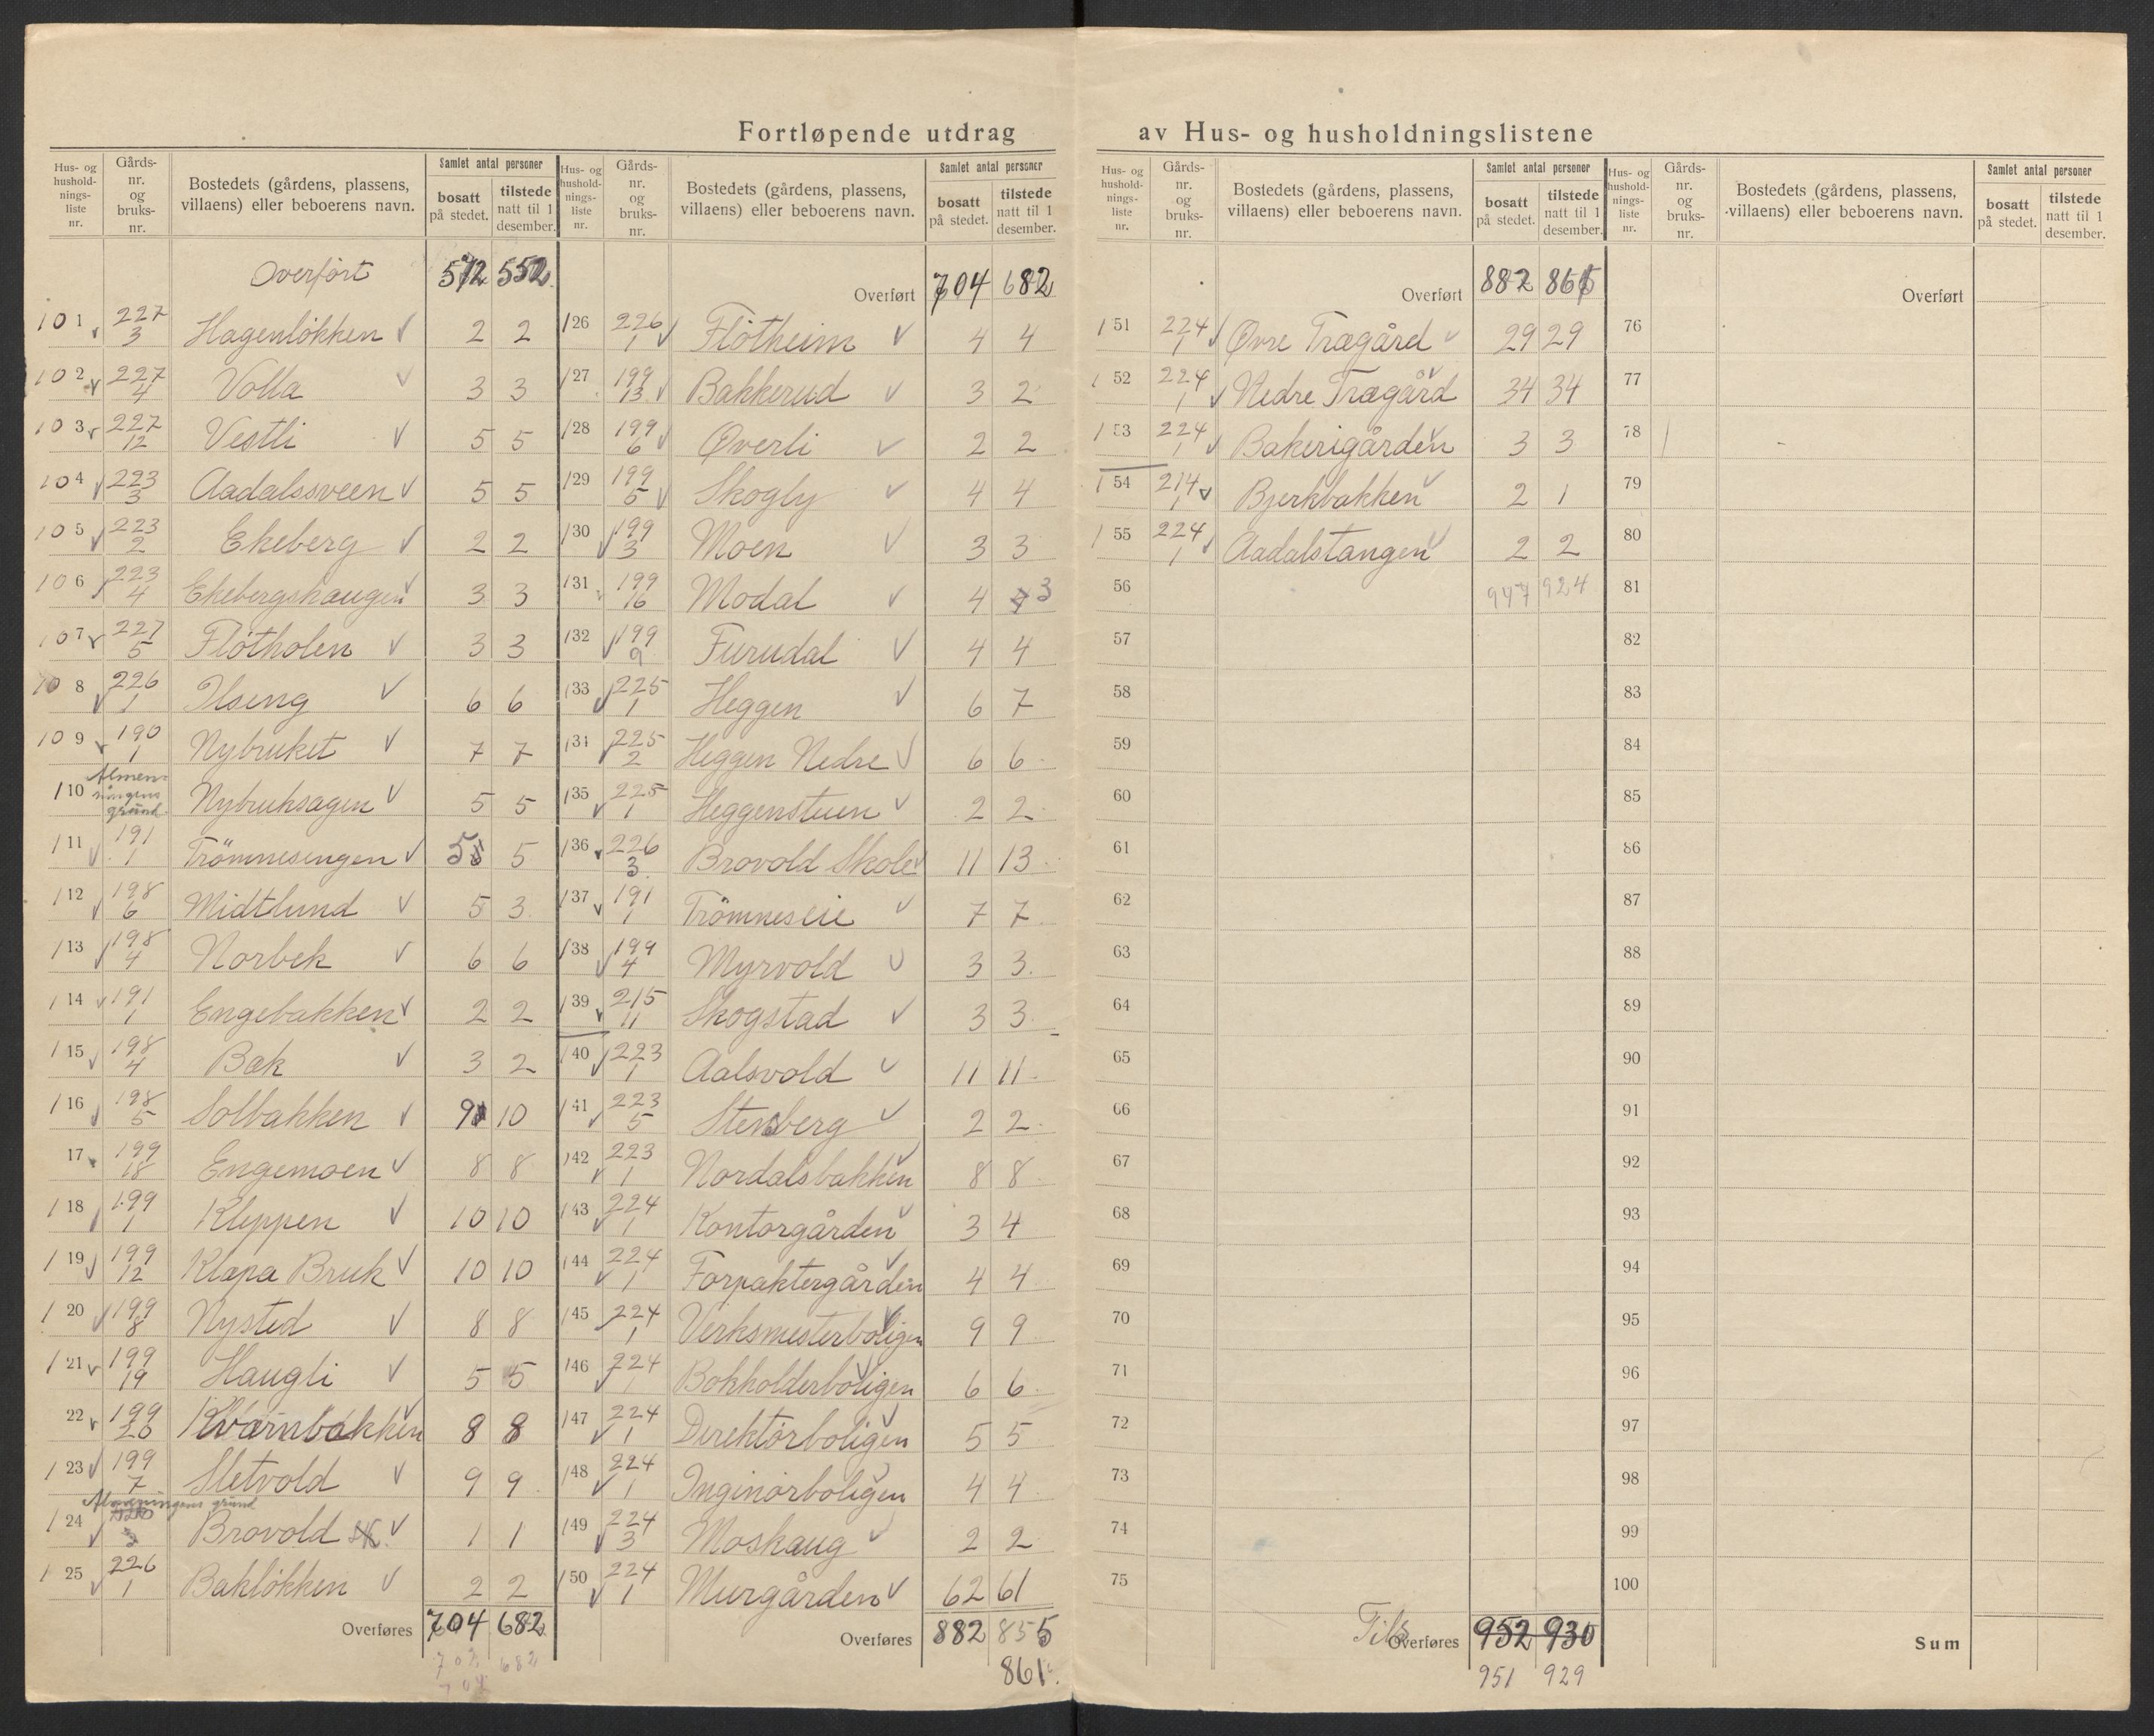 Fortløpende utdrag av Hus- og husholdningslistene
Hus- og husholdnings-liste nr. Gårds-nr. og bruks-nr. Bostedets (gårdens, plassens, villaens) eller beboerens navn. Samlet antal personer bosatt på stedet. tilstede natt til 1 desember.
Overført 572 552
101 227/3 Hagenløkken 2 2
102 227/4 Volla 3 3
103 227/12 Vestli 5 5
104 223/3 Aadalssveen 5 5
105 223/2 Ekeberg 2 2
106 223/4 Ekebergshaugen 3 3
107 227/5 Flötholen 3 3
108 226/1 Ilseng 6 6
109 190/1 Nybruket 7 7
110 Almenningens grund Nybruksagen 5 5
111 191/1 Trömnesengen 5 5
112 198/6 Midtlund 5 3
113 198/4 Norbek 6 6
114 191/1 Engebakken 2 2
115 198/4 Bak 3 2
116 198/5 Solbakken 9 10
17 199/18 Engemoen 8 8
118 199/1 Kleppen 10 10
119 199/12 Klapa Bruk 10 10
120 199/8 Nysted 8 8
121 199/19 Haugli 5 5
22 199/20 Kvarnbakken 8 8
123 199/7 Sletvold 9 9
124 Almenningens grund Brovold 1 1
125 226/1 Bakløkken 2 2
Overføres 704 682
702 682
704
Hus- og husholdnings-liste nr. Gårds-nr. og bruks-nr. Bostedets (gårdens, plassens, villaens) eller beboerens navn. Samlet antal personer bosatt på stedet. tilstede natt til 1 desember.
Overført 704 682
126 226/1 Flötheim 4 4
127 199/13 Bakkerud 3 2
128 199/6 Øverli 2 2
129 199/5 Skogly 4 4
130 199/3 Moen 3 3
131 199/16 Modal 4 3
132 199/9 Furudal 4 4
133 225/1 Heggen 6 7
134 225/2 Heggen Nedre 6 6
135 225/1 Heggenstuen 2 2
136 226/3 Brovold Skole 11 13
137 191/1 Trömneseie 7 7
138 199/4 Myrvold 3 3
139 215/11 Skogstad 3 3
140 223/1 Aalsvold 11 11
141 223/5 Stensberg 2 2
142 223/1 Nordalsbakken 8 8
143 224/1 Kontorgården 3 4
144 224/1 Forpaktergården 4 4
145 224/1 Verksmesterboligen 9 9
146 224/1 Bokholderboligen 6 6
147 224/1 Direktörboligen 5 5
148 224/1 Inginörboligen 4 4
149 224/3 Moshaug 2 2
150 224/1 Murgården 62 61
Overføres 882 855
861
Hus- og husholdnings-liste nr. Gårds-nr. og bruks-nr. Bostedets (gårdens, plassens, villaens) eller beboerens navn. Samlet antal personer bosatt på stedet. tilstede natt til 1 desember.
Overført 882 861
151 224/1 Øvre Trægård 29 29
152 224/1 Nedre Trægård 34 34
153 224/1 Bakerigården 3 3
154 214/1 Bjerkbakken 2 1
155 224/1 Aadalstangen 2 2
56 947 924
57
58
59
60
61
62
63
64
65
66
67
68
69
70
71
72
73
74
75
Tils Overføres 952 930
951 929
Hus- og hushold-nings-liste nr. Gårds-nr. og bruks-nr. Bostedets (gårdens, plassens, villaens) eller beboerens navn. Samlet antal personer bosatt på stedet. tilstede natt til 1 desember.
Overført
76
77
78
79
80
81
82
83
84
85
86
87
88
89
90
91
92
93
94
95
96
97
98
99
100
Sum